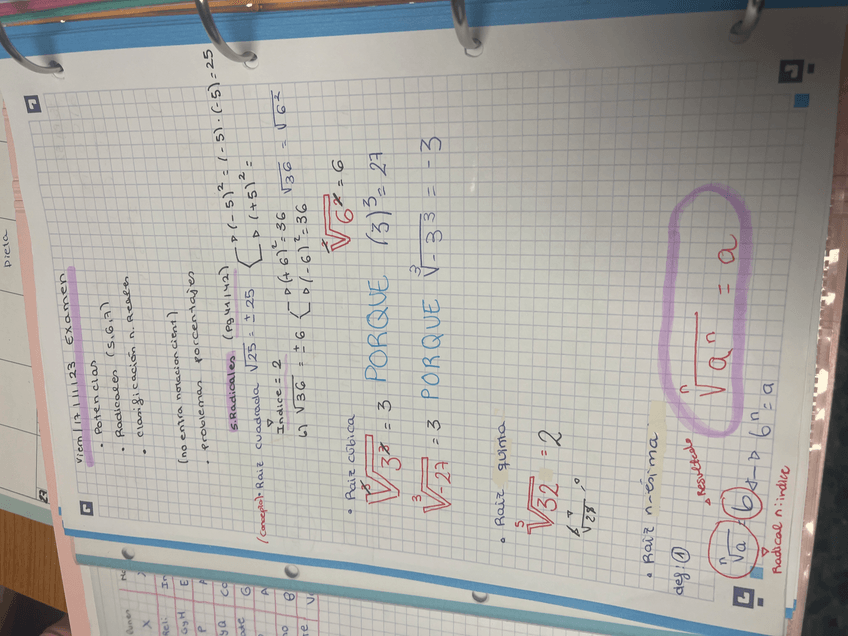 Viern 17/11/23 Examen
• Potencias
• Radicales (5,6,7)
• Clasificación n. Reales
(no entra notacion cient)
• Problemas porcentajes
5. Radicales (Pg 41 y 42)
(concepto): Raiz cuadrada √25 = ± 25 → (-5)² = (-5)·(-5) = 25
→ (+5)² =
Indice = 2
b) √36 = ± 6 → (+6)² = 36 √36 = √6²
→ (-6)² = 36
²√6² = 6
• Raiz cúbica
³√3³ = 3 PORQUE (3)³ = 27
³√-27 = 3 PORQUE ³√-3³ = -3
• Raiz quima
⁵√32 = 2
• Raiz n-ésima
def: ① ⁿ√aⁿ = a
Resultado
ⁿ√a = b ↔ bⁿ = a
Radical n: indice
Dieta